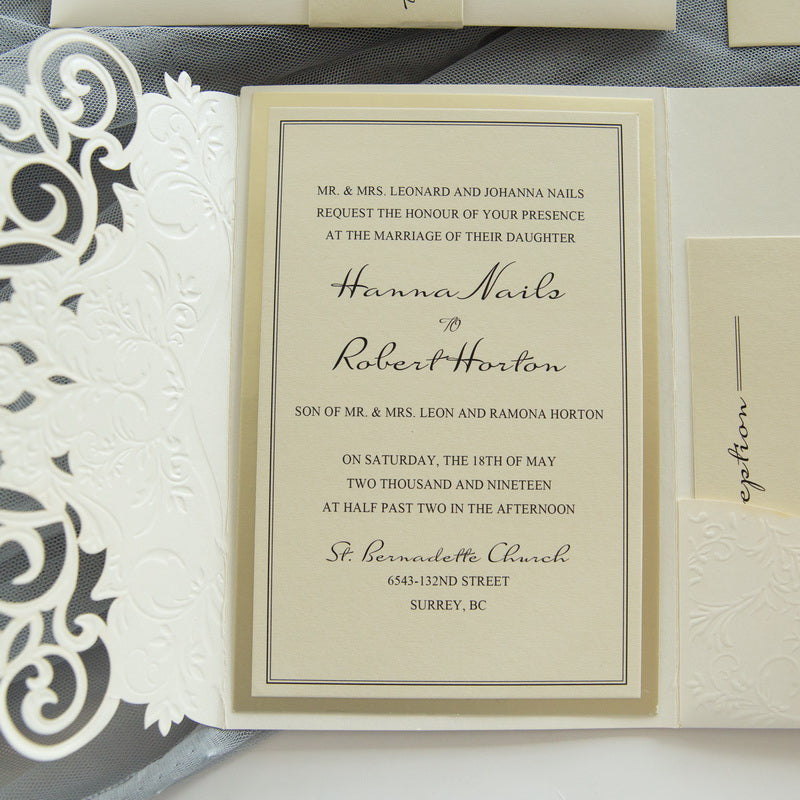 MR. & MRS. LEONARD AND JOHANNA NAILS
REQUEST THE HONOUR OF YOUR PRESENCE
AT THE MARRIAGE OF THEIR DAUGHTER
Hanna Nails
TO
Robert Horton
SON OF MR. & MRS. LEON AND RAMONA HORTON
ON SATURDAY, THE 18TH OF MAY
TWO THOUSAND AND NINETEEN
AT HALF PAST TWO IN THE AFTERNOON
St. Bernadette Church
6543-132ND STREET
SURREY, BC